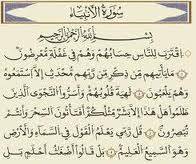 سُورَةُ الأَنبِيَاء
بِسْمِ اللَّهِ الرَّحْمَٰنِ الرَّحِيمِ
اقْتَرَبَ لِلنَّاسِ حِسَابُهُمْ وَهُمْ فِي غَفْلَةٍ مُّعْرِضُونَ
مَا يَأْتِيهِم مِّن ذِكْرٍ مِّن رَّبِّهِم مُّحْدَثٍ إِلَّا اسْتَمَعُوهُ
وَهُمْ يَلْعَبُونَ لَاهِيَةً قُلُوبُهُمْ وَأَسَرُّوا النَّجْوَى الَّذِينَ
ظَلَمُوا هَلْ هَٰذَا إِلَّا بَشَرٌ مِّثْلُكُمْ أَفَتَأْتُونَ السِّحْرَ وَأَنتُمْ
تُبْصِرُونَ قَالَ رَبِّي يَعْلَمُ الْقَوْلَ فِي السَّمَاءِ وَالْأَرْضِ
وَهُوَ السَّمِيعُ الْعَلِيمُ بَلْ قَالُوا أَضْغَاثُ أَحْلَامٍ بَلِ